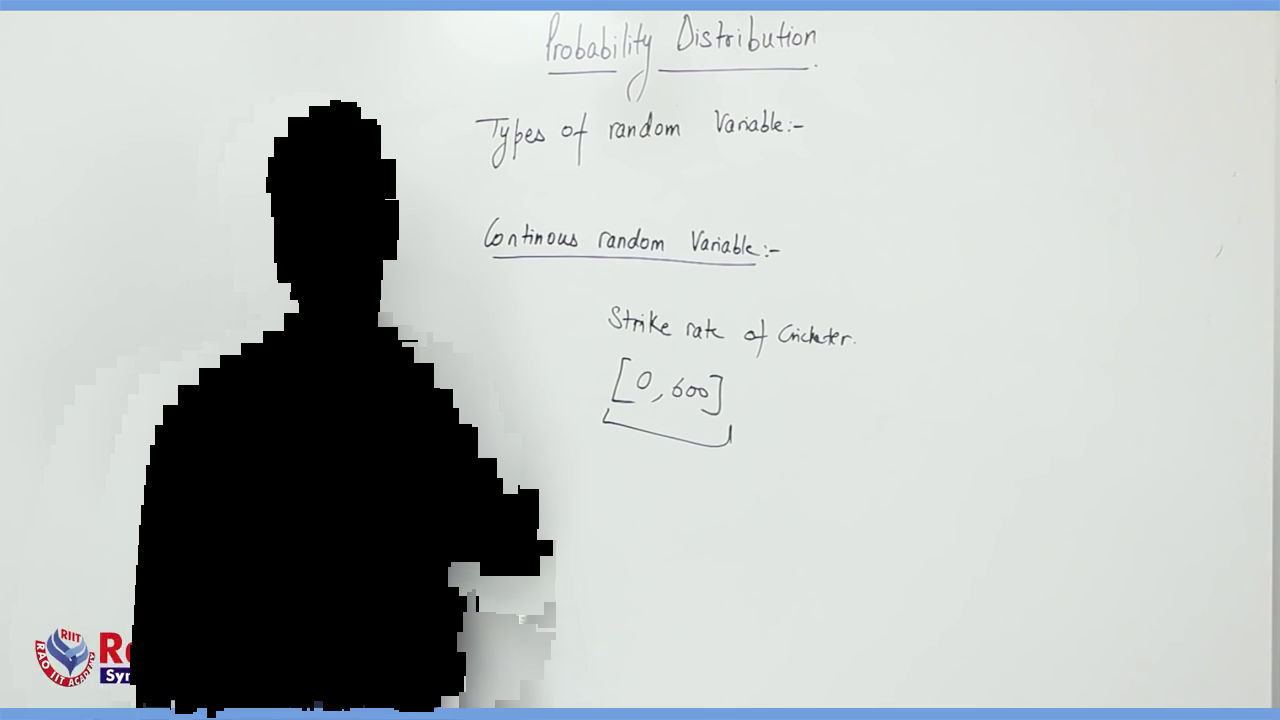 Probability Distribution
Types of random Variable:-
Continous random Variable:-
Strike rate of Cricketer.
[0, 600]
RIIT
RAO IIT ACADEMY